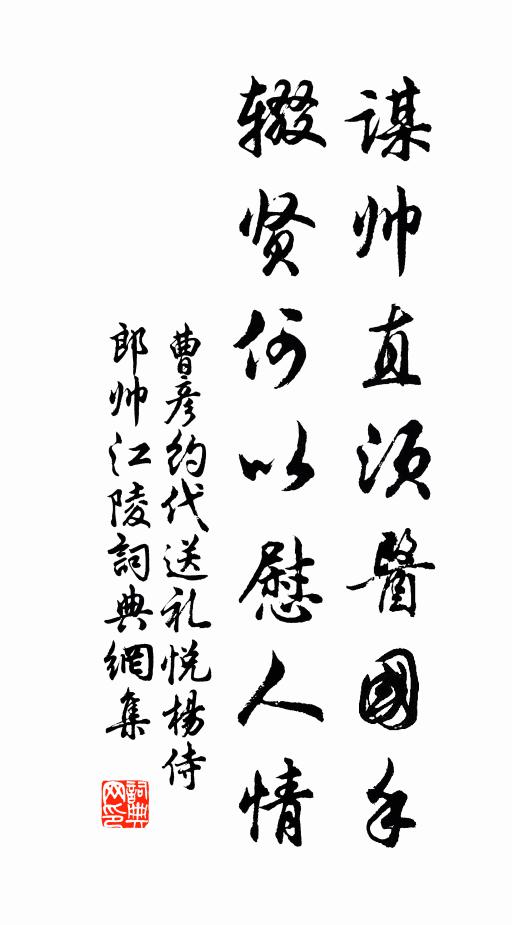 谋帅直须醫國手
辍贤何以慰人情
曹彦约代送礼悦楊侍
郎帅江陵詞典網集
詞典
网印